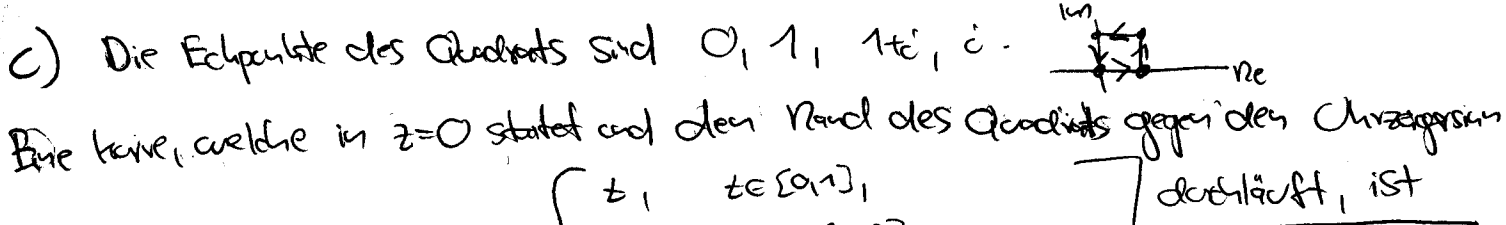 c) Die Eckpunkte des Quadrats sind 0, 1, 1+i, i. Im Re
Eine Kurve, welche in z=0 startet und den Rand des Quadrats gegen den Uhrzeigersinn
t, t∈[0,1], durchläuft, ist